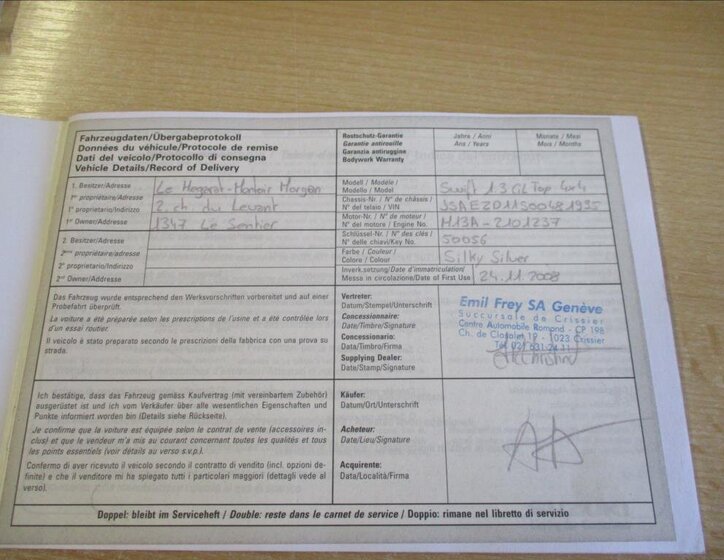 Fahrzeugdaten/Übergabeprotokoll
Données du véhicule/Protocole de remise
Dati del veicolo/Protocollo di consegna
Vehicle Details/Record of Delivery
Rostschutz-Garantie
Garantie antirouille
Garanzia antiruggine
Bodywork Warranty
Jahre / Anni
Ans / Years
Monate / Mesi
Mois / Months
1. Besitzer/Adresse
1er propriétaire/adresse
1° proprietario/Indirizzo
1st Owner/Address
Le Hegarat-Montoir Morgan
2. ch. du Levant
1347 Le Sentier
2. Besitzer/Adresse
2ème propriétaire/adresse
2° proprietario/Indirizzo
2nd Owner/Address
Modell / Modèle /
Modello / Model
Swift 1.3 GL Top 4x4
Chassis-Nr. / N° de châssis /
N° del telaio / VIN
JSAEZD11S00481935
Motor-Nr. / N° de moteur /
N° del motore / Engine No.
M13A-2101237
Schlüssel-Nr. / N° des clés /
N° delle chiavi/Key No.
50056
Farbe / Couleur /
Colore / Colour
Silky Silver
Inverk.setzung/Date d'immatriculation/
Messa in circolazione/Date of First Use
24.11.2008
Das Fahrzeug wurde entsprechend den Werksvorschriften vorbereitet und auf einer
Probefahrt überprüft.
La voiture a été préparée selon les prescriptions de l'usine et a été contrôlée lors
d'un essai routier.
Il veicolo è stato preparato secondo le prescrizioni della fabbrica con una prova su
strada.
Vertreter:
Datum/Stempel/Unterschrift
Concessionnaire:
Date/Timbre/Signature
Concessionario:
Data/Timbro/Firma
Supplying Dealer:
Date/Stamp/Signature
Emil Frey SA Genève
Succursale de Crissier
Centre Automobile Romand - CP 198
Ch. de Closalet 19 - 1023 Crissier
Tél. 021 631 24 11
Ich bestätige, dass das Fahrzeug gemäss Kaufvertrag (mit vereinbartem Zubehör)
ausgerüstet ist und ich vom Verkäufer über alle wesentlichen Eigenschaften und
Punkte informiert worden bin (Details siehe Rückseite).
Je confirme que la voiture est équipée selon le contrat de vente (accessoires in-
clus) et que le vendeur m'a mis au courant concernant toutes les qualités et tous
les points essentiels (voir détails au verso s.v.p.).
Confermo di aver ricevuto il veicolo secondo il contratto di vendito (incl. opzioni de-
finite) e che il venditore mi ha spiegato tutti i particolari maggiori (dettagli vede al
verso).
Käufer:
Datum/Ort/Unterschrift
Acheteur:
Date/Lieu/Signature
Acquirente:
Data/Località/Firma
Doppel: bleibt im Serviceheft / Double: reste dans le carnet de service / Doppio: rimane nel libretto di servizio